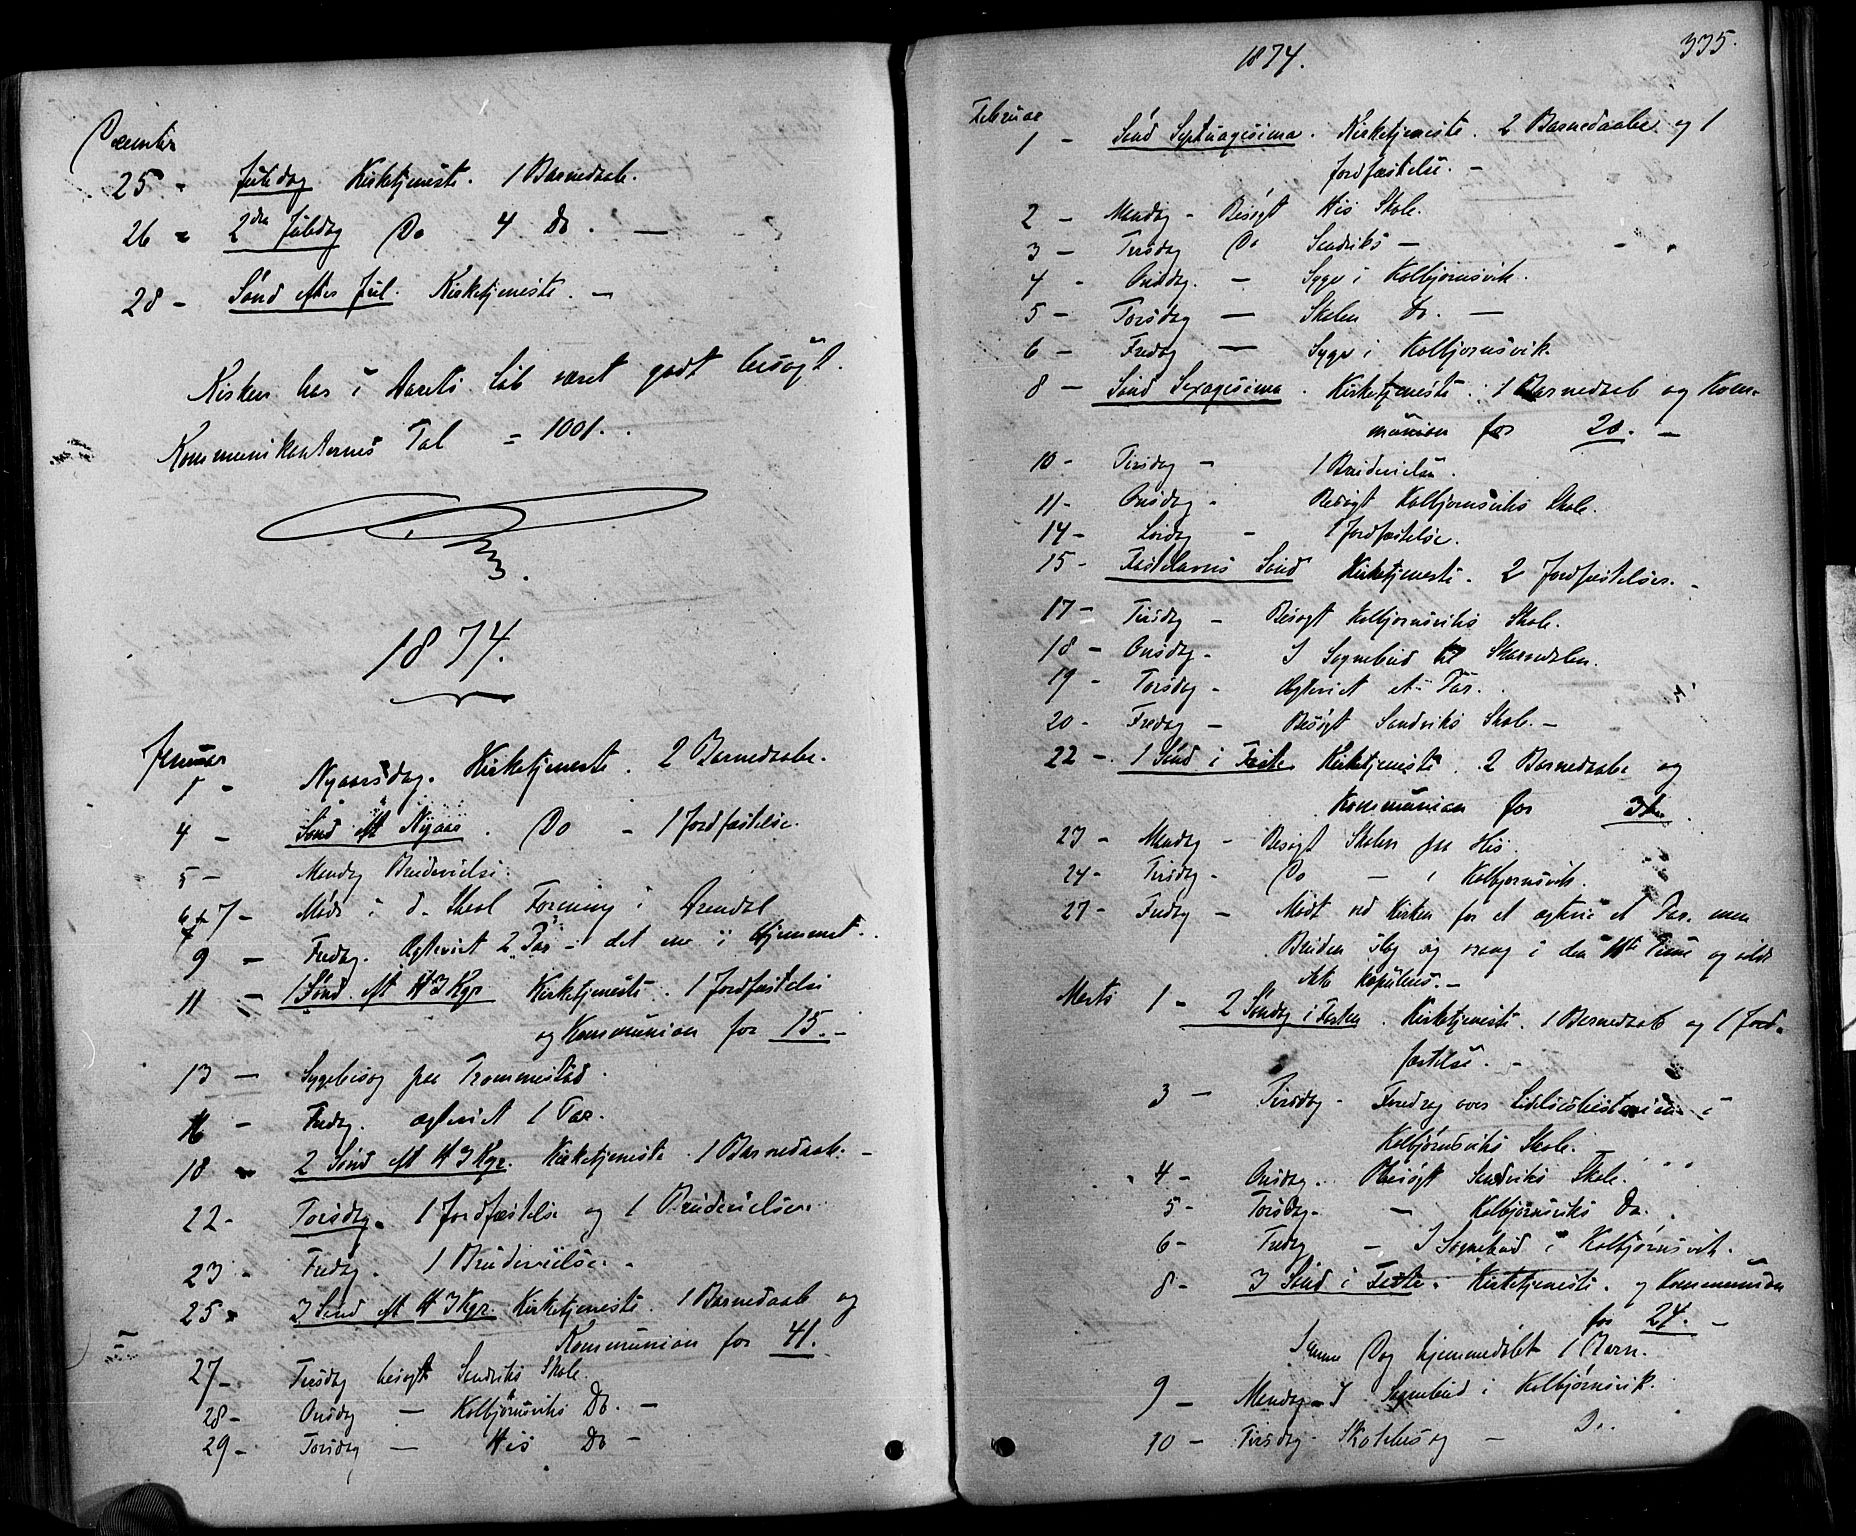 December
25 - Juledag Kirketjeneste. 1 Barnedaab.
26 - 2den Juledag Do 4 Do. -
28 - Sønd efter Jul. Kirketjeneste. -
Kirken har i Aarets Løb været godt besøgt.
Kommunikanternes Tal = 1001.
1874.
Januar
1 - Nyaarsdag. Kirketjeneste. 2 Barnedaabe.
4 - Sønd eft Nyaar. Do - 1 Jordfæstelse.
5 - Mandag Brudevielse.
6 & 7 - Møde i d. Theol Forening i Arendal
9 - Fredag. Ægteviet 2 Par - det ene i Hjemmet.
11 - 1 Sønd eft H 3 Kgr Kirketjeneste. 1 Jordfæstelse
og Kommunion for 15. -
13 - Sygebesøg paa Trommestad.
16 - Fredag. ægteviet 1 Par.
18 - 2 Sønd eft H 3 Kgr. Kirketjeneste. 1 Barnedaab. -
22 - Torsdag. 1 Jordfæstelse og 1 Brudevielse.
23 - Fredag. 1 Brudevielse.
25 - 3 Sønd eft H 3 Kgr. Kirketjeneste. 1 Barnedaab og
Kommunion for 41.
27 - Tirsdag besøgt Sandviks Skole.
28 - Onsdag - Kolbjørnsviks Do. -
29 - Torsdag - His Do -
335.
1874.
Februar
1 - Sønd Septuagesima. Kirketjeneste. 2 Barnedaabe og 1
Jordfæstelse. -
2 - Mandag - Besøgt His Skole.
3 - Tirsdag Do Sandviks -
4 - Onsdag. - Syge i Kolbjørnsvik.
5 - Torsdag - Skolen Do. -
6 - Fredag - Syge i Kolbjørnsvik.
8 - Sønd Sexagesima. Kirketjeneste. 1 Barnedaab og Kom-
munion for 20. -
10 - Tirsdag - 1 Brudevielse.
11 - Onsdag - Besøgt Kolbjørnsviks Skole.
14 - Lørdag - 1 Jordfæstelse.
15 - Fastelavns Sønd Kirketjeneste. 2 Jordfæstelser. -
17 - Tirsdag - Besøgt Kolbjørnsviks Skole.
18 - Onsdag - I Sognebud til
19 - Torsdag - Ægteviet et Par.
20 - Fredag - Besøgt Sandviks Skole. -
22 - 1 Sønd i Faste Kirketjeneste. 2 Barnedaabe og
Kommunion for
23 - Mandag - Besøgt Skolen paa His.
24 - Tirsdag - Do - i Kolbjørnsvik.
27 - Fredag - Mødt ved Kirken for at ægtevie et Par. men
Bruden slog sig vrang i den 11te Time og vilde
ikke kopuleres. -
Marts 1 - 2 Søndag i Fasten. Kirketjeneste. 1 Barnedaab og 1 Jord-
fæstelse. -
3 - Tirsdag - Foredrag over Lidelseshistorien i
Kolbjørnsviks Skole.
4 - Onsdag. Besøgt Sandviks Skole.
5 - Torsdag. - Kolbjørnsviks Do.
6 - Fredag - I Sognebud i Kolbjørnsvik.
8 - 3 Sønd i Faste. Kirketjeneste. og Kommunion
for 24. -
Samme Dag hjemmedøbt 1 Barn.
9 - Mandag - I Sognebud i Kolbjørnsvik.
10 - Tirsdag - Skolebesøg - Do.